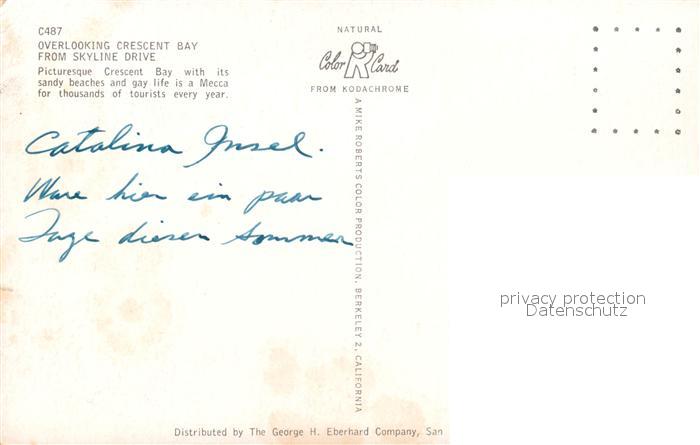 C487
OVERLOOKING CRESCENT BAY
FROM SKYLINE DRIVE
Picturesque Crescent Bay with its
sandy beaches and gay life is a Mecca
for thousands of tourists every year.
NATURAL
Color Card
FROM KODACHROME
A MIKE ROBERTS COLOR PRODUCTION, BERKELEY 2, CALIFORNIA
Catalina Insel.
Ware hier ein paar
Tage diesen Sommer
privacy protection
Datenschutz
Distributed by The George H. Eberhard Company, San